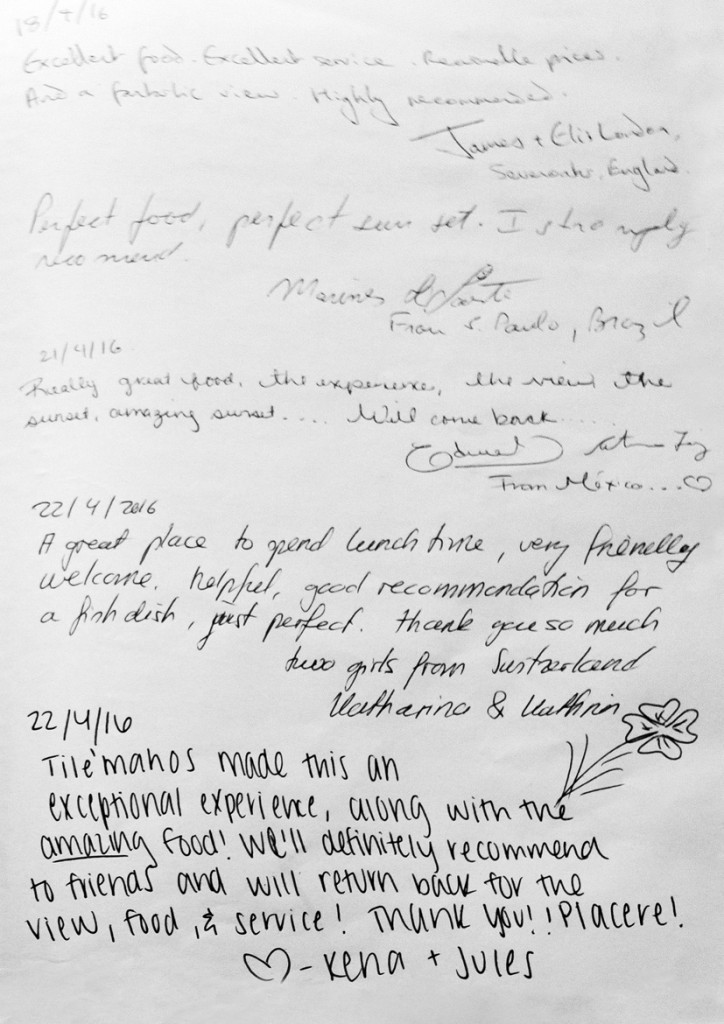 18/4/16
Excellent food. Excellent service. Reasonable prices.
And a fantastic view. Highly recommended.
James + Elis London,
Sevenoaks, England.
Perfect food, perfect sun set. I strongly
recomend.
From S. Paulo, Brazil
21/4/16
Really great food, the experience, the view, the
sunset, amazing sunset.... Will come back.....
From México...♡
22/4/2016
A great place to spend lunchtime, very friendly
welcome, helpful, good recommendation for
a fish dish, just perfect. thank you so much
two girls from Switzerland
Katharina & Kathrin
22/4/16
Tilémahos made this an
exceptional experience, along with the
amazing food! We'll definitely recommend
to friends and will return back for the
view, food, & service! Thank you!! Piacere!
♡-Kena + Jules